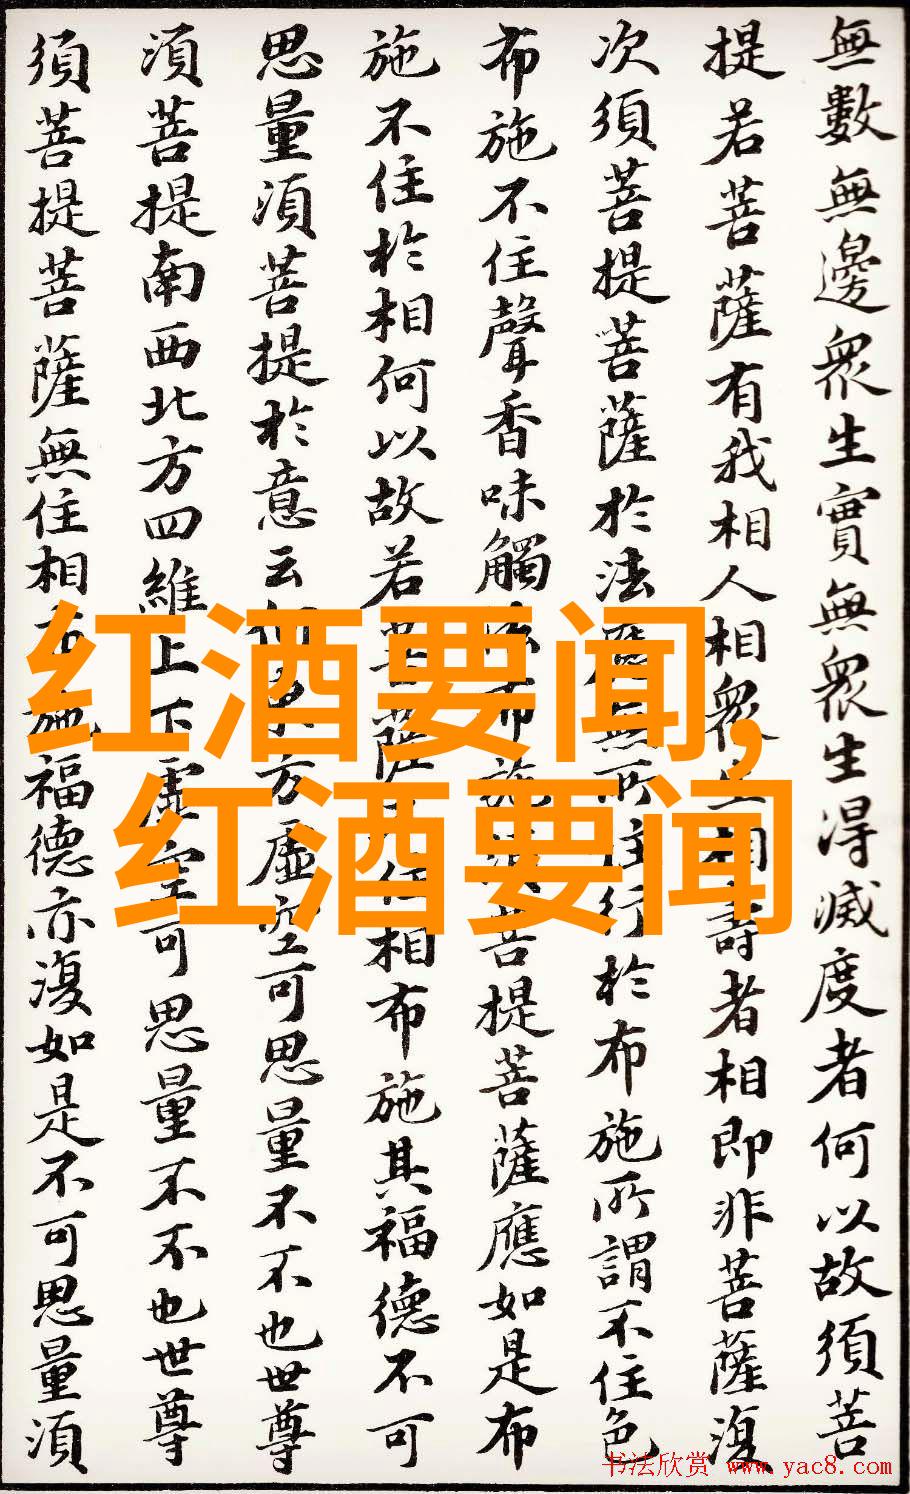 無數無邊眾生實無眾生得滅度者何以故須菩
提若菩薩有我相人相眾生相壽者相即非菩薩復
次須菩提菩薩於法應無所住行於布施所謂不住色
布施不住聲香味觸法布施須菩提菩薩應如是布
施不住於相何以故若菩薩不住相布施其福德不可
思量須菩提於意云何東方虛空可思量不不也世尊
須菩提南西北方四維上下虛空可思量不不也世尊
須菩提菩薩無住相布施福德亦復如是不可思量須
红酒要闻,
红酒要闻
书法欣赏 www.yac8.com